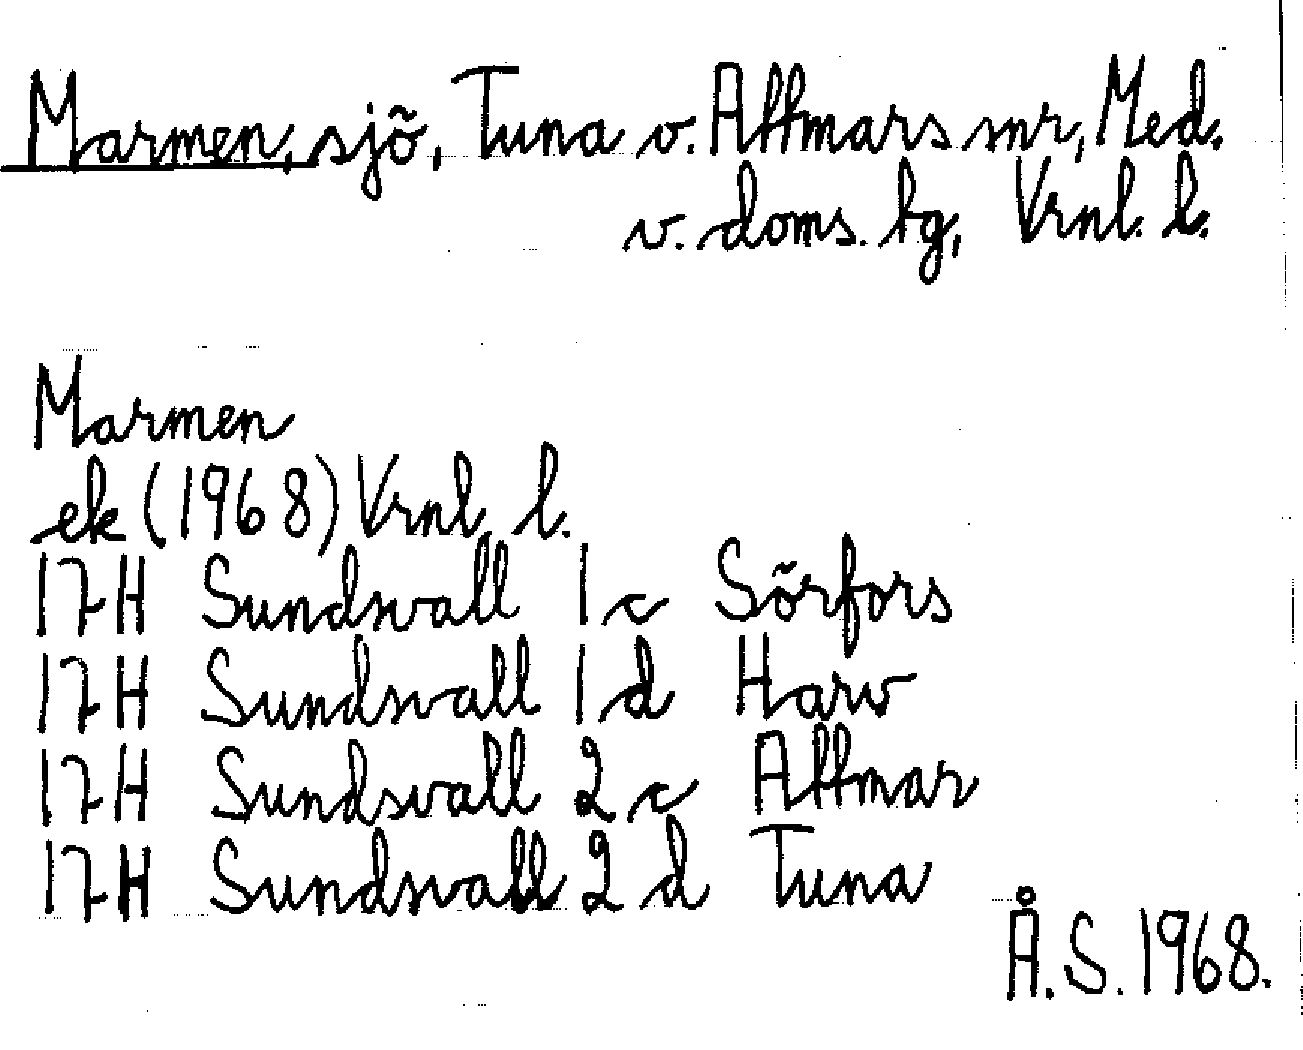 Marmen, sjö, Tuna o. Attmars snr, Med.
v. doms. tg, Vrnl. l.
Marmen
ek (1968) Vrnl. l.
17H Sundsvall 1c Sörfors
17H Sundsvall 1d Harv
17H Sundsvall 2c Attmar
17H Sundsvall 2d Tuna
Å.S. 1968.